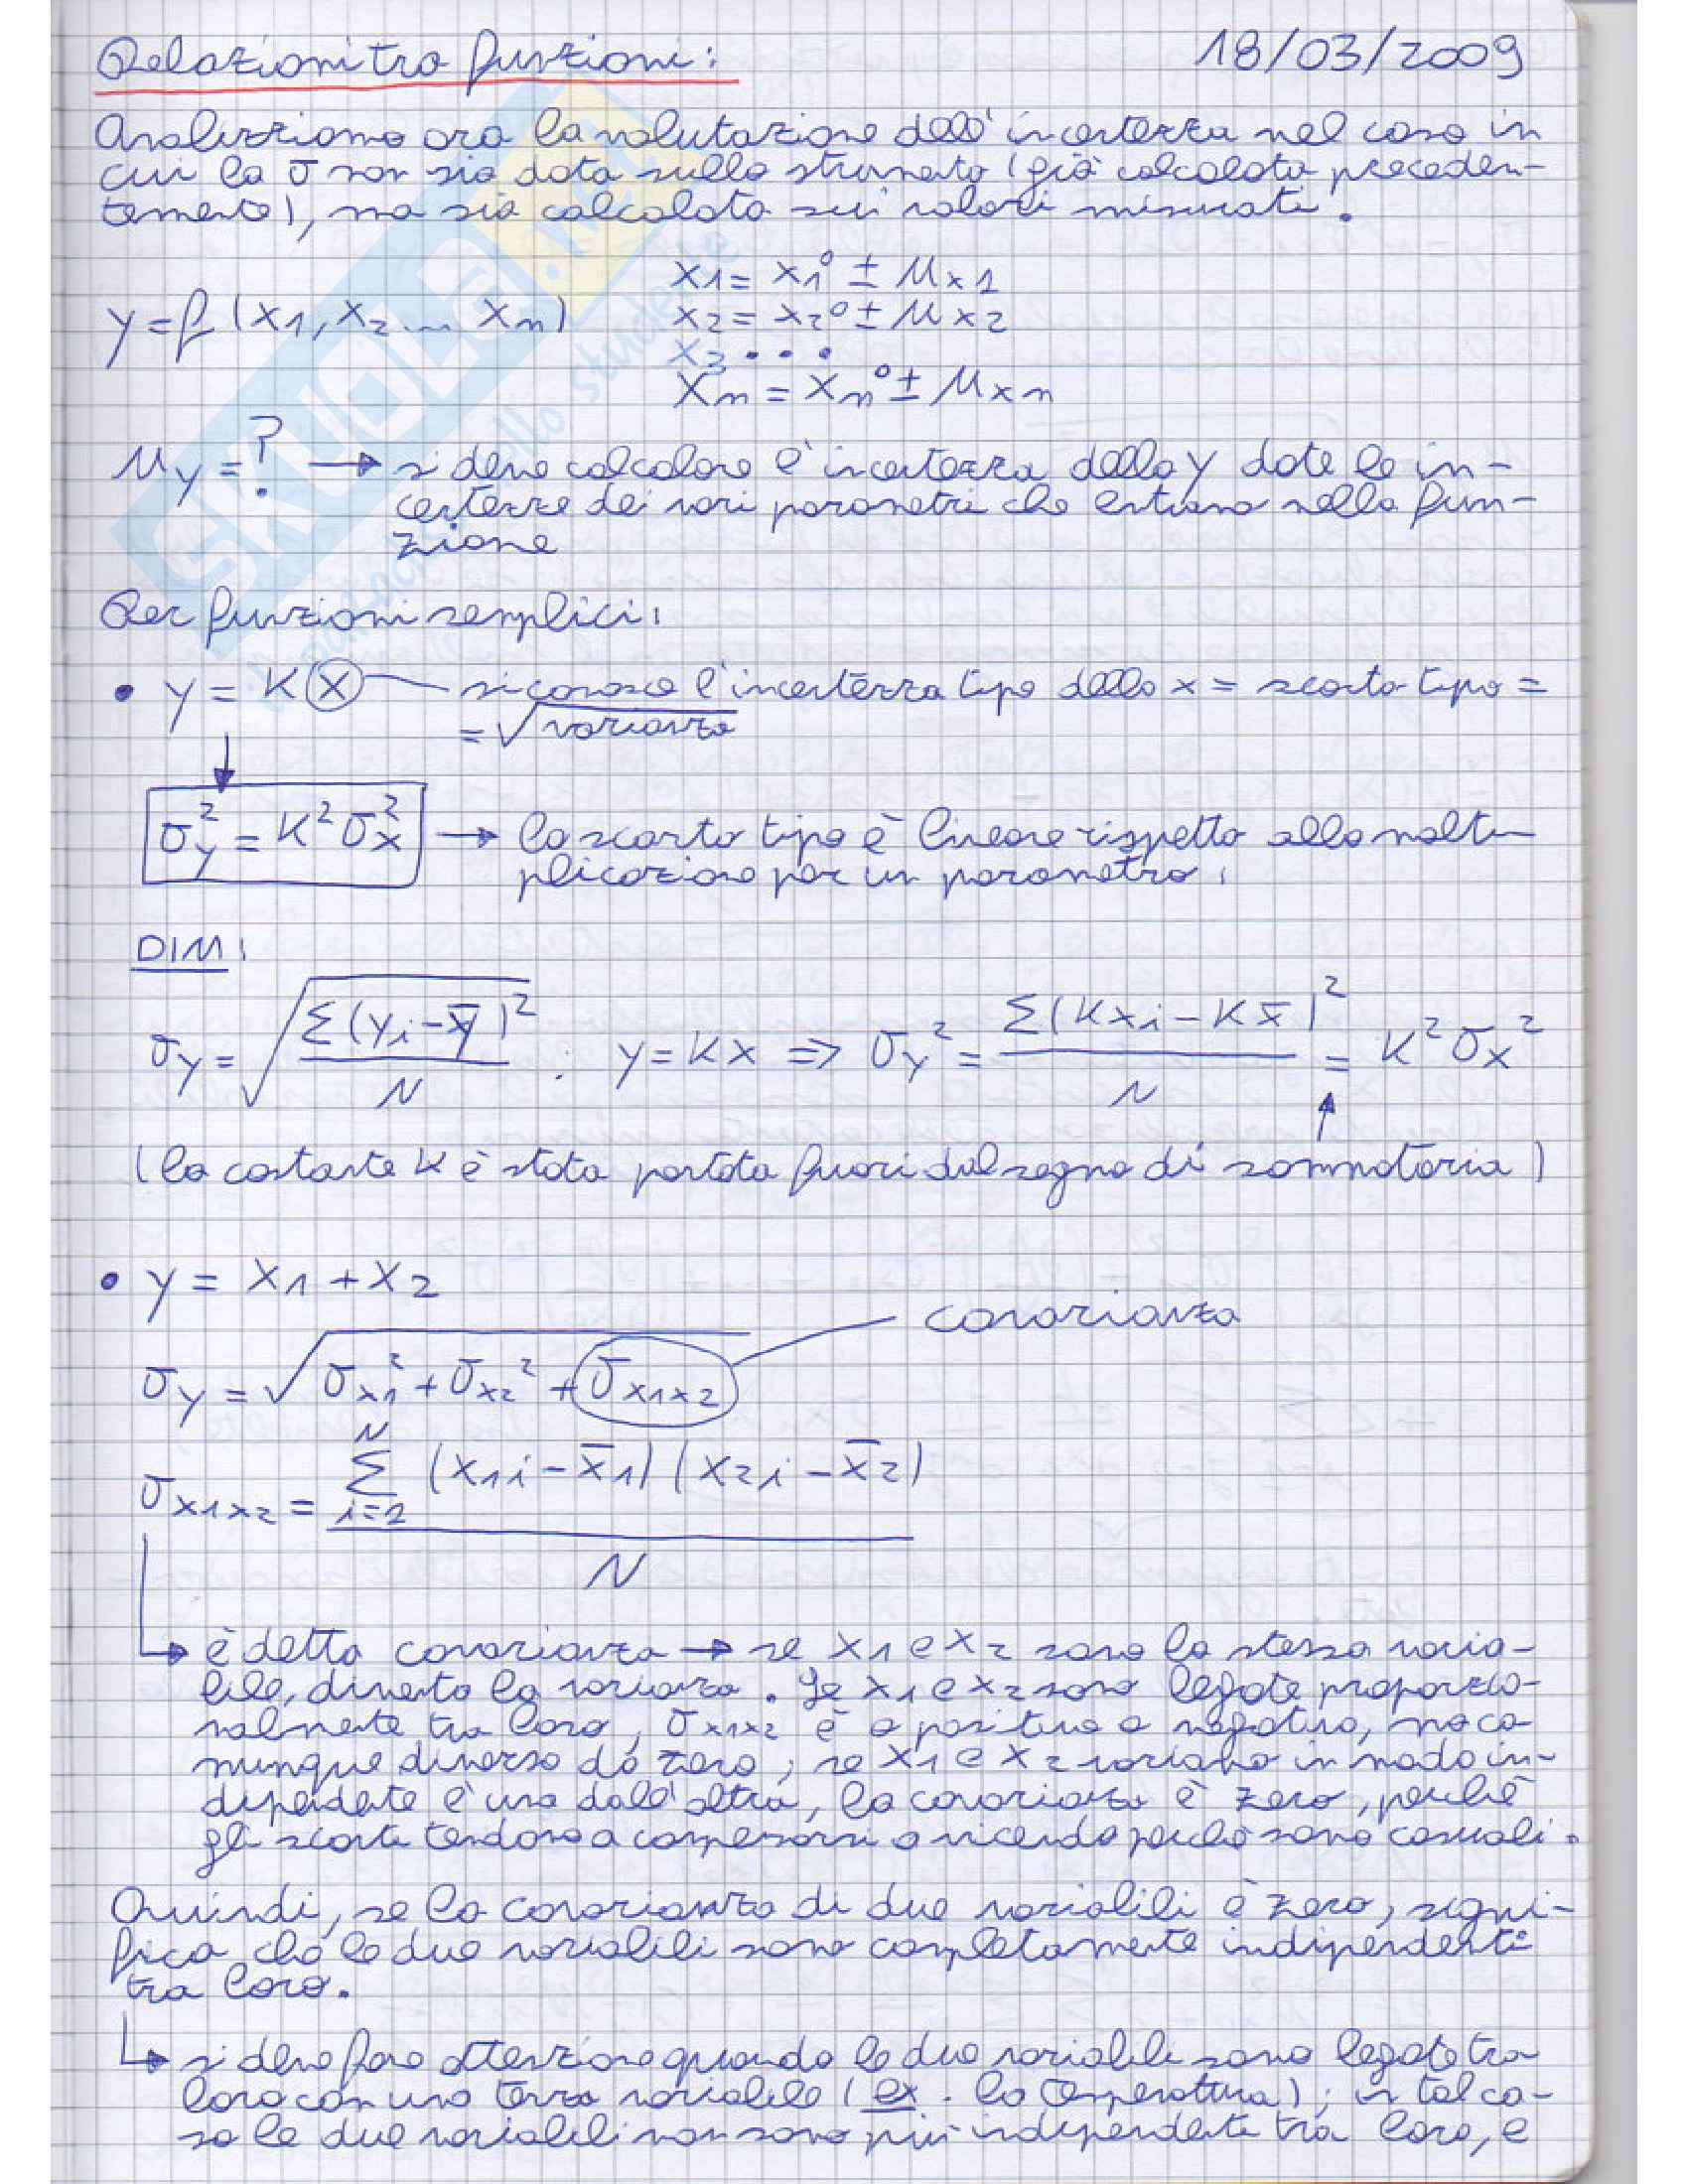 Relazioni tra funzioni: 18/03/2009
Analizziamo ora la valutazione dell'incertezza nel caso in
cui la σ non sia data sullo strumento (già calcolata preceden-
temente), ma sia calcolata sui valori misurati.
x1 = x1° ± μx1
y = f (x1, x2 ... xn) x2 = x2° ± μx2
x3 ...
xn = xn° ± μxn
μy = ? → si deve calcolare l'incertezza della y date le in-
certezze dei vari parametri che entrano nella fun-
zione
Per funzioni semplici:
• y = K(x) si conosce l'incertezza tipo della x = scarto tipo =
= √varianza
σy² = K²σx² → lo scarto tipo è lineare rispetto alla molti-
plicazione per un parametro.
DIM:
σy = √(Σ(yi - ȳ)² / N) ; y = Kx ⇒ σy² = Σ(Kxi - Kx̄)² / N = K²σx²
(la costante K è stata portata fuori dal segno di sommatoria)
• y = x1 + x2
covarianza
σy = √(σx1² + σx2² + σx1x2)
σx1x2 = Σ i=1 N (x1i - x̄1)(x2i - x̄2) / N
è detta covarianza → se x1 e x2 sono la stessa varia-
bile, diventa la varianza. Se x1 e x2 sono legate proporzio-
nalmente tra loro, σx1x2 è o positivo o negativo, ma co-
munque diverso da zero; se x1 e x2 variano in modo in-
dipendente l'una dall'altra, la covarianza è zero, perchè
gli scarti tendono a compensarsi a vicenda perchè sono casuali.
Quindi, se la covarianza di due variabili è zero, signi-
fica che le due variabili sono completamente indipendenti
tra loro.
si deve fare attenzione quando le due variabili sono legate tra
loro con una terza variabile (ex. la temperatura); in tal ca-
so le due variabili non sono più indipendenti tra loro, e
SKUOLA.net